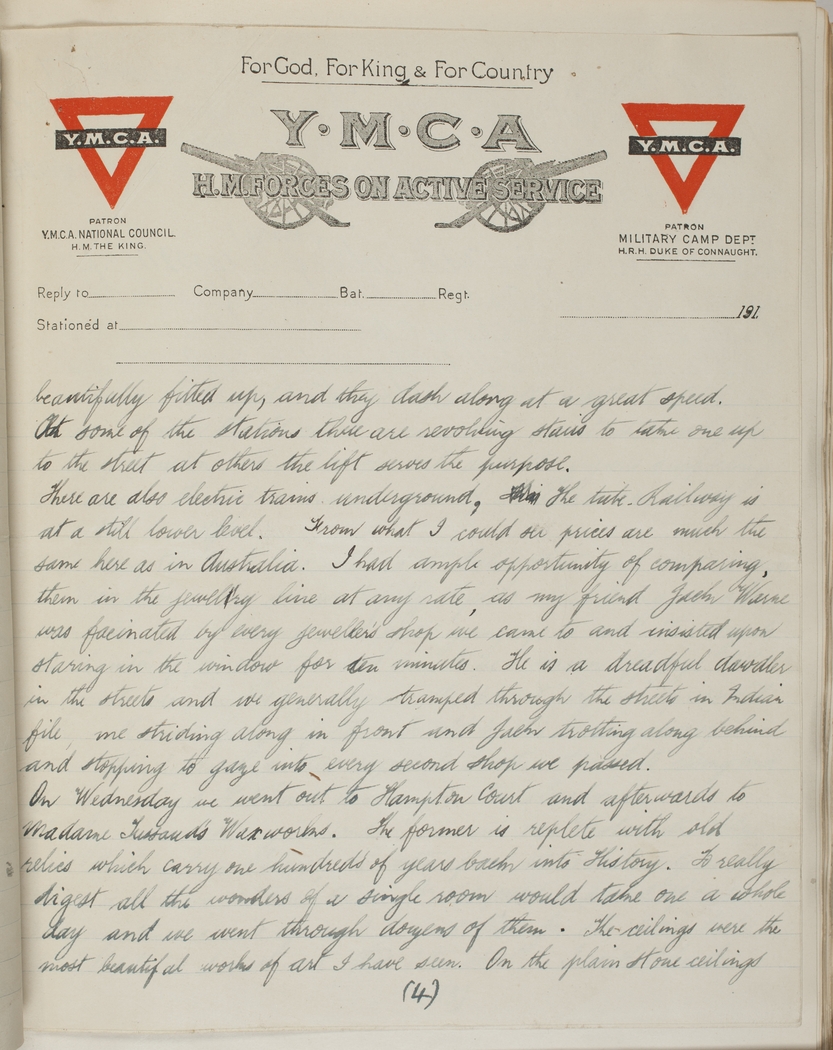 For God, For King & For Country
Y·M·C·A
H.M. FORCES ON ACTIVE SERVICE
Y.M.C.A.
PATRON
Y.M.C.A. NATIONAL COUNCIL.
H.M. THE KING.
Y.M.C.A.
PATRON
MILITARY CAMP DEPT
H.R.H. DUKE OF CONNAUGHT.
Reply to Company Bat. Regt.
191.
Stationed at
beautifully fitted up, and they dash along at a great speed.
At some of the stations there are revolving stairs to take one up
to the street at others the lift serves the purpose.
There are also electric trains underground, The tube-Railway is
at a still lower level. From what I could see prices are much the
same here as in Australia. I had ample opportunity of comparing,
them in the jewellry line at any rate, as my friend Jack Warne
was facinated by every jeweller's shop we came to and insisted upon
staring in the window for ten minutes. He is a dreadful dawdler
in the streets and we generally tramped through the streets in Indian
file, me striding along in front and Jack trotting along behind
and stopping to gaze into every second shop we passed.
On Wednesday we went out to Hampton Court and afterwards to
Madame Tussaud's Waxworks. The former is replete with old
relics which carry one hundreds of years back into History. To really
digest all the wonders of a single room would take one a whole
day and we went through dozens of them. The ceilings were the
most beautiful works of art I have seen. On the plain stone ceilings
(4)